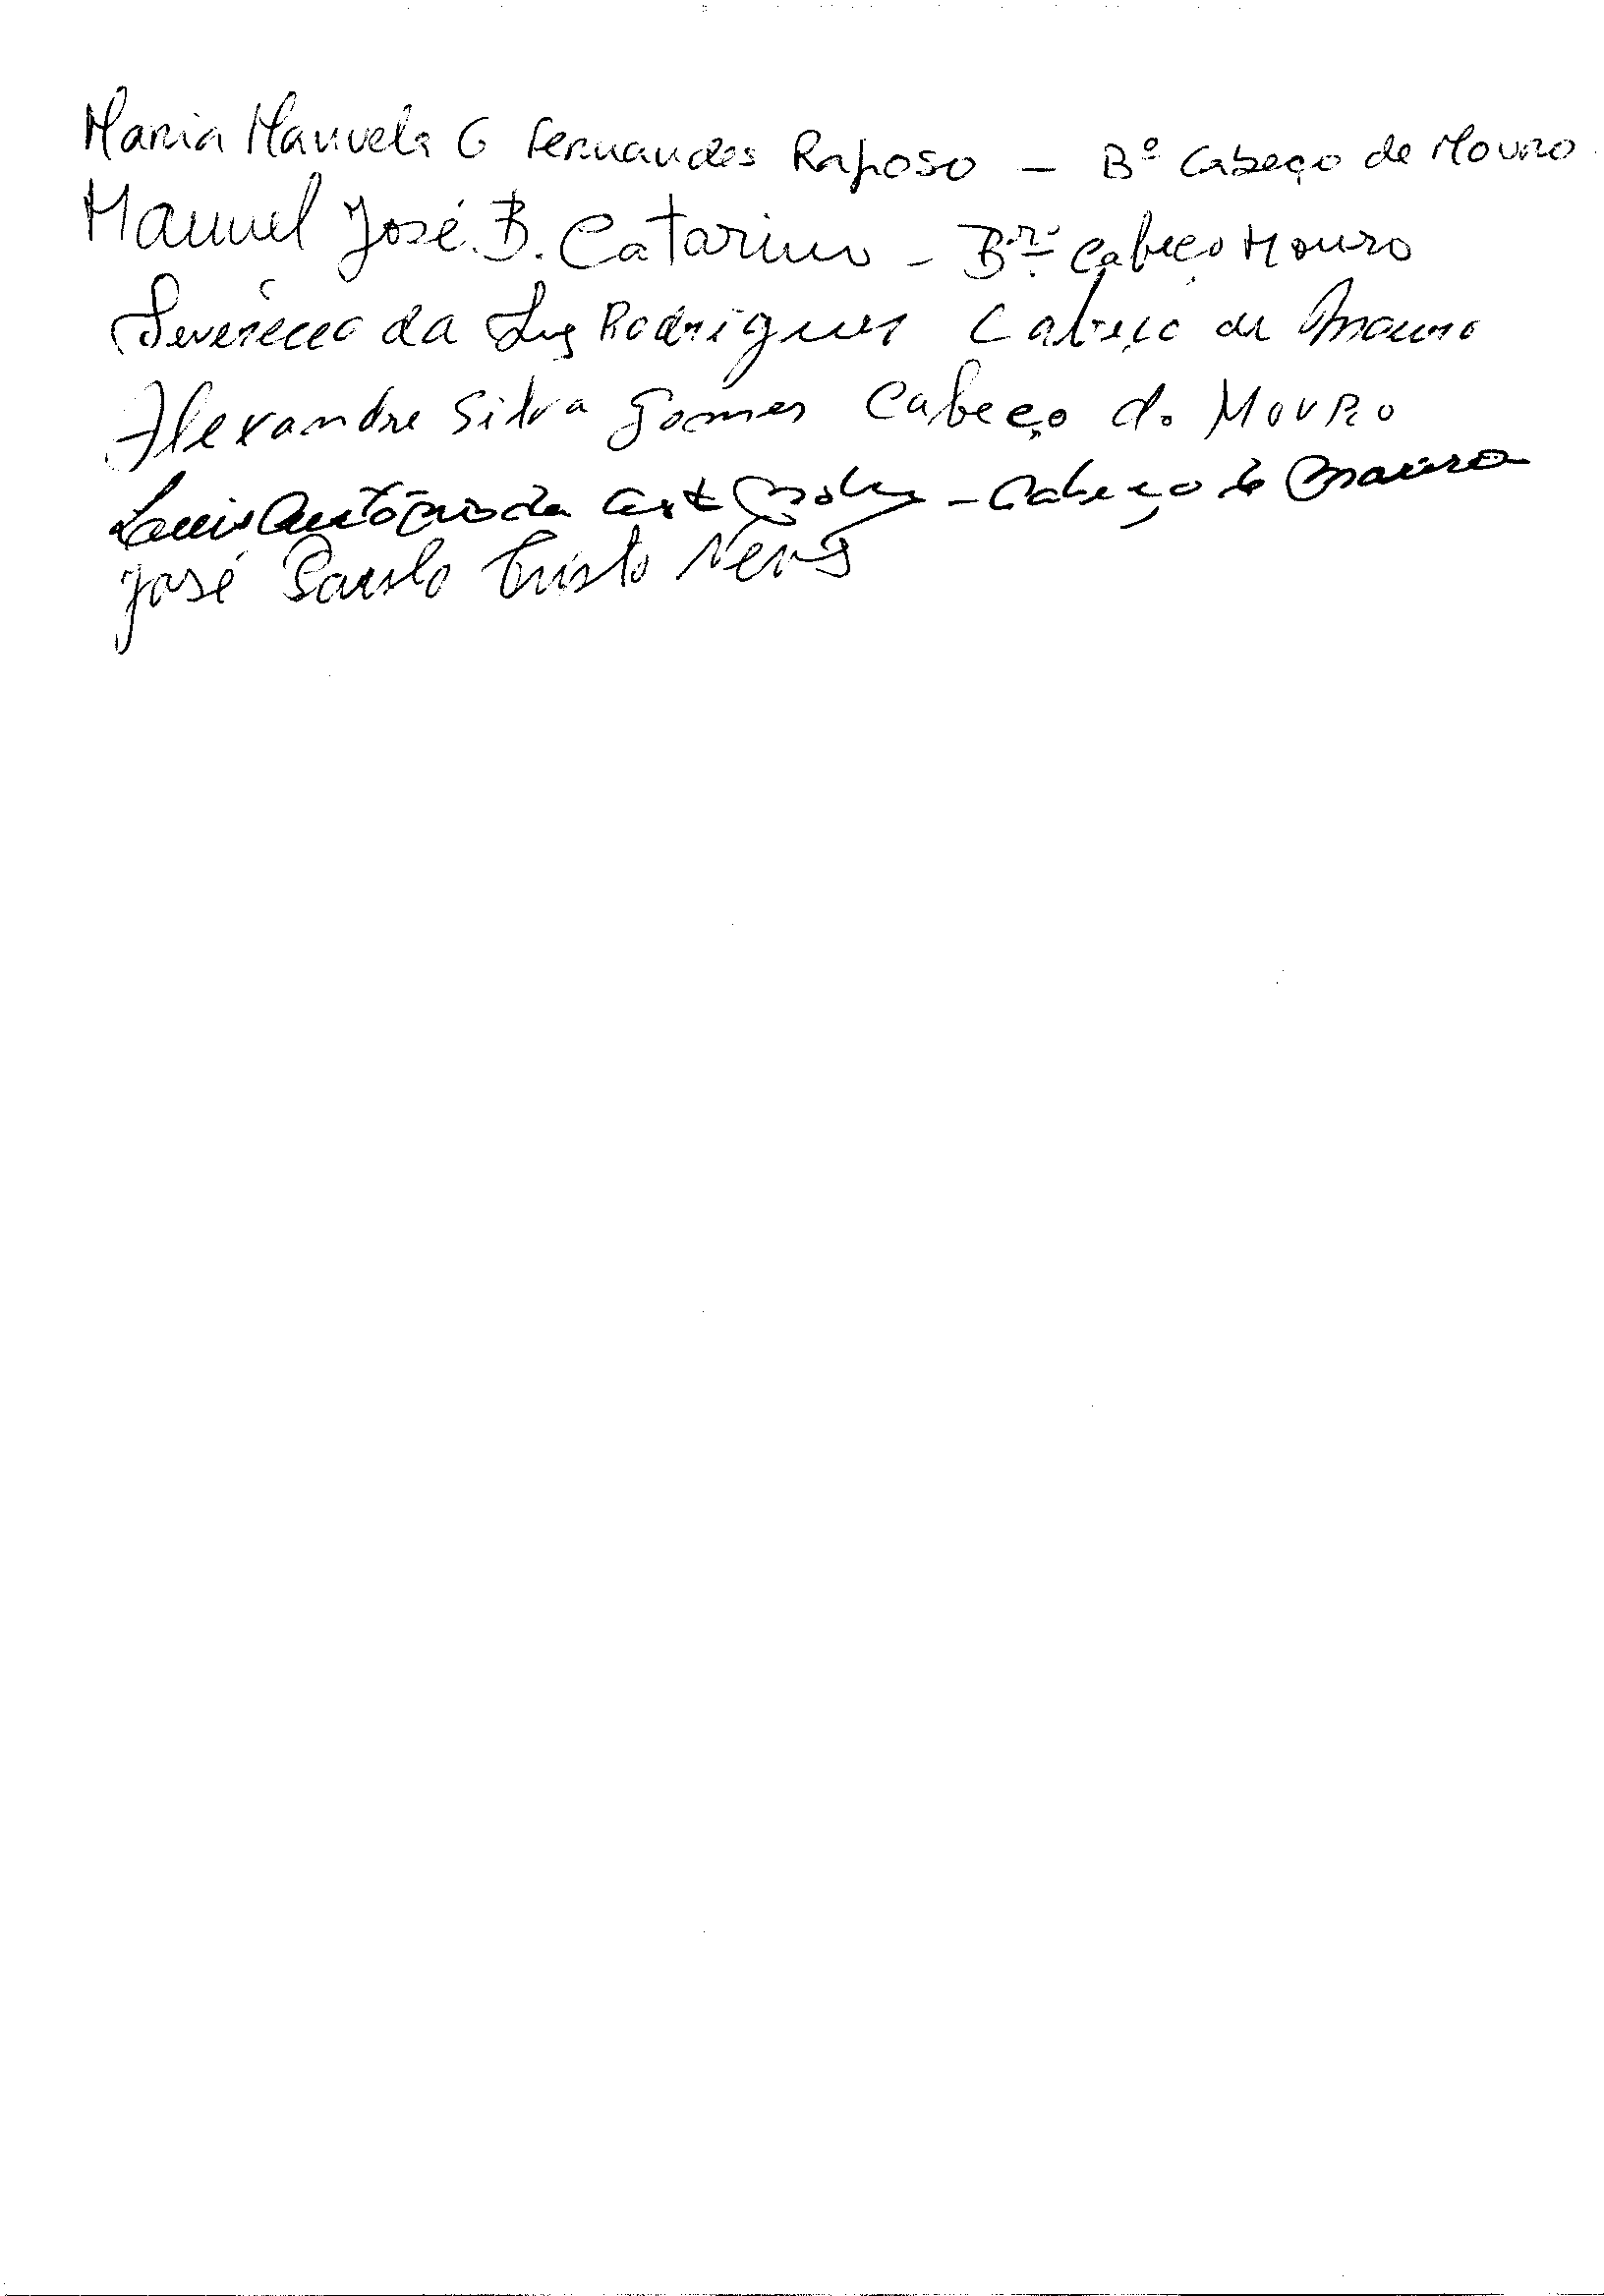 Maria Manuela G Fernandes Raposo - Bº Cabeço de Mouro
Manuel José B. Catarino - Brº Cabeço Mouro
da Luz Rodrigues Cabeço de Mouro
Alexandre Silva Gomes Cabeço do MOURO
Luis António da - Cabeço de Mouro
José Paulo Cristo Neves